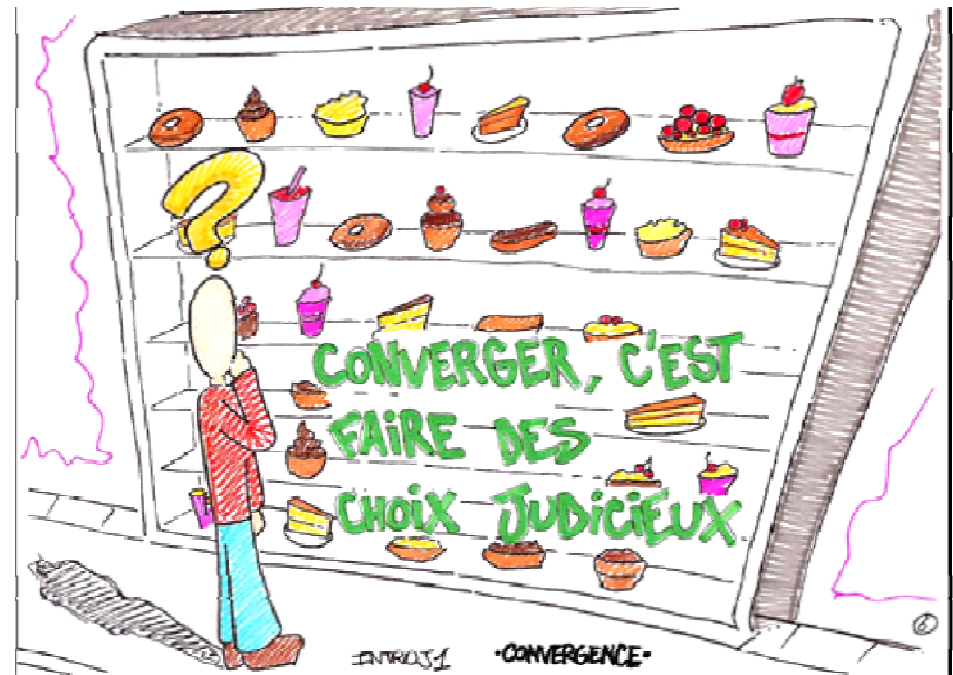 ?
CONVERGER, C'EST
FAIRE DES
CHOIX JUDICIEUX.
INTROJ1 •CONVERGENCE•
6